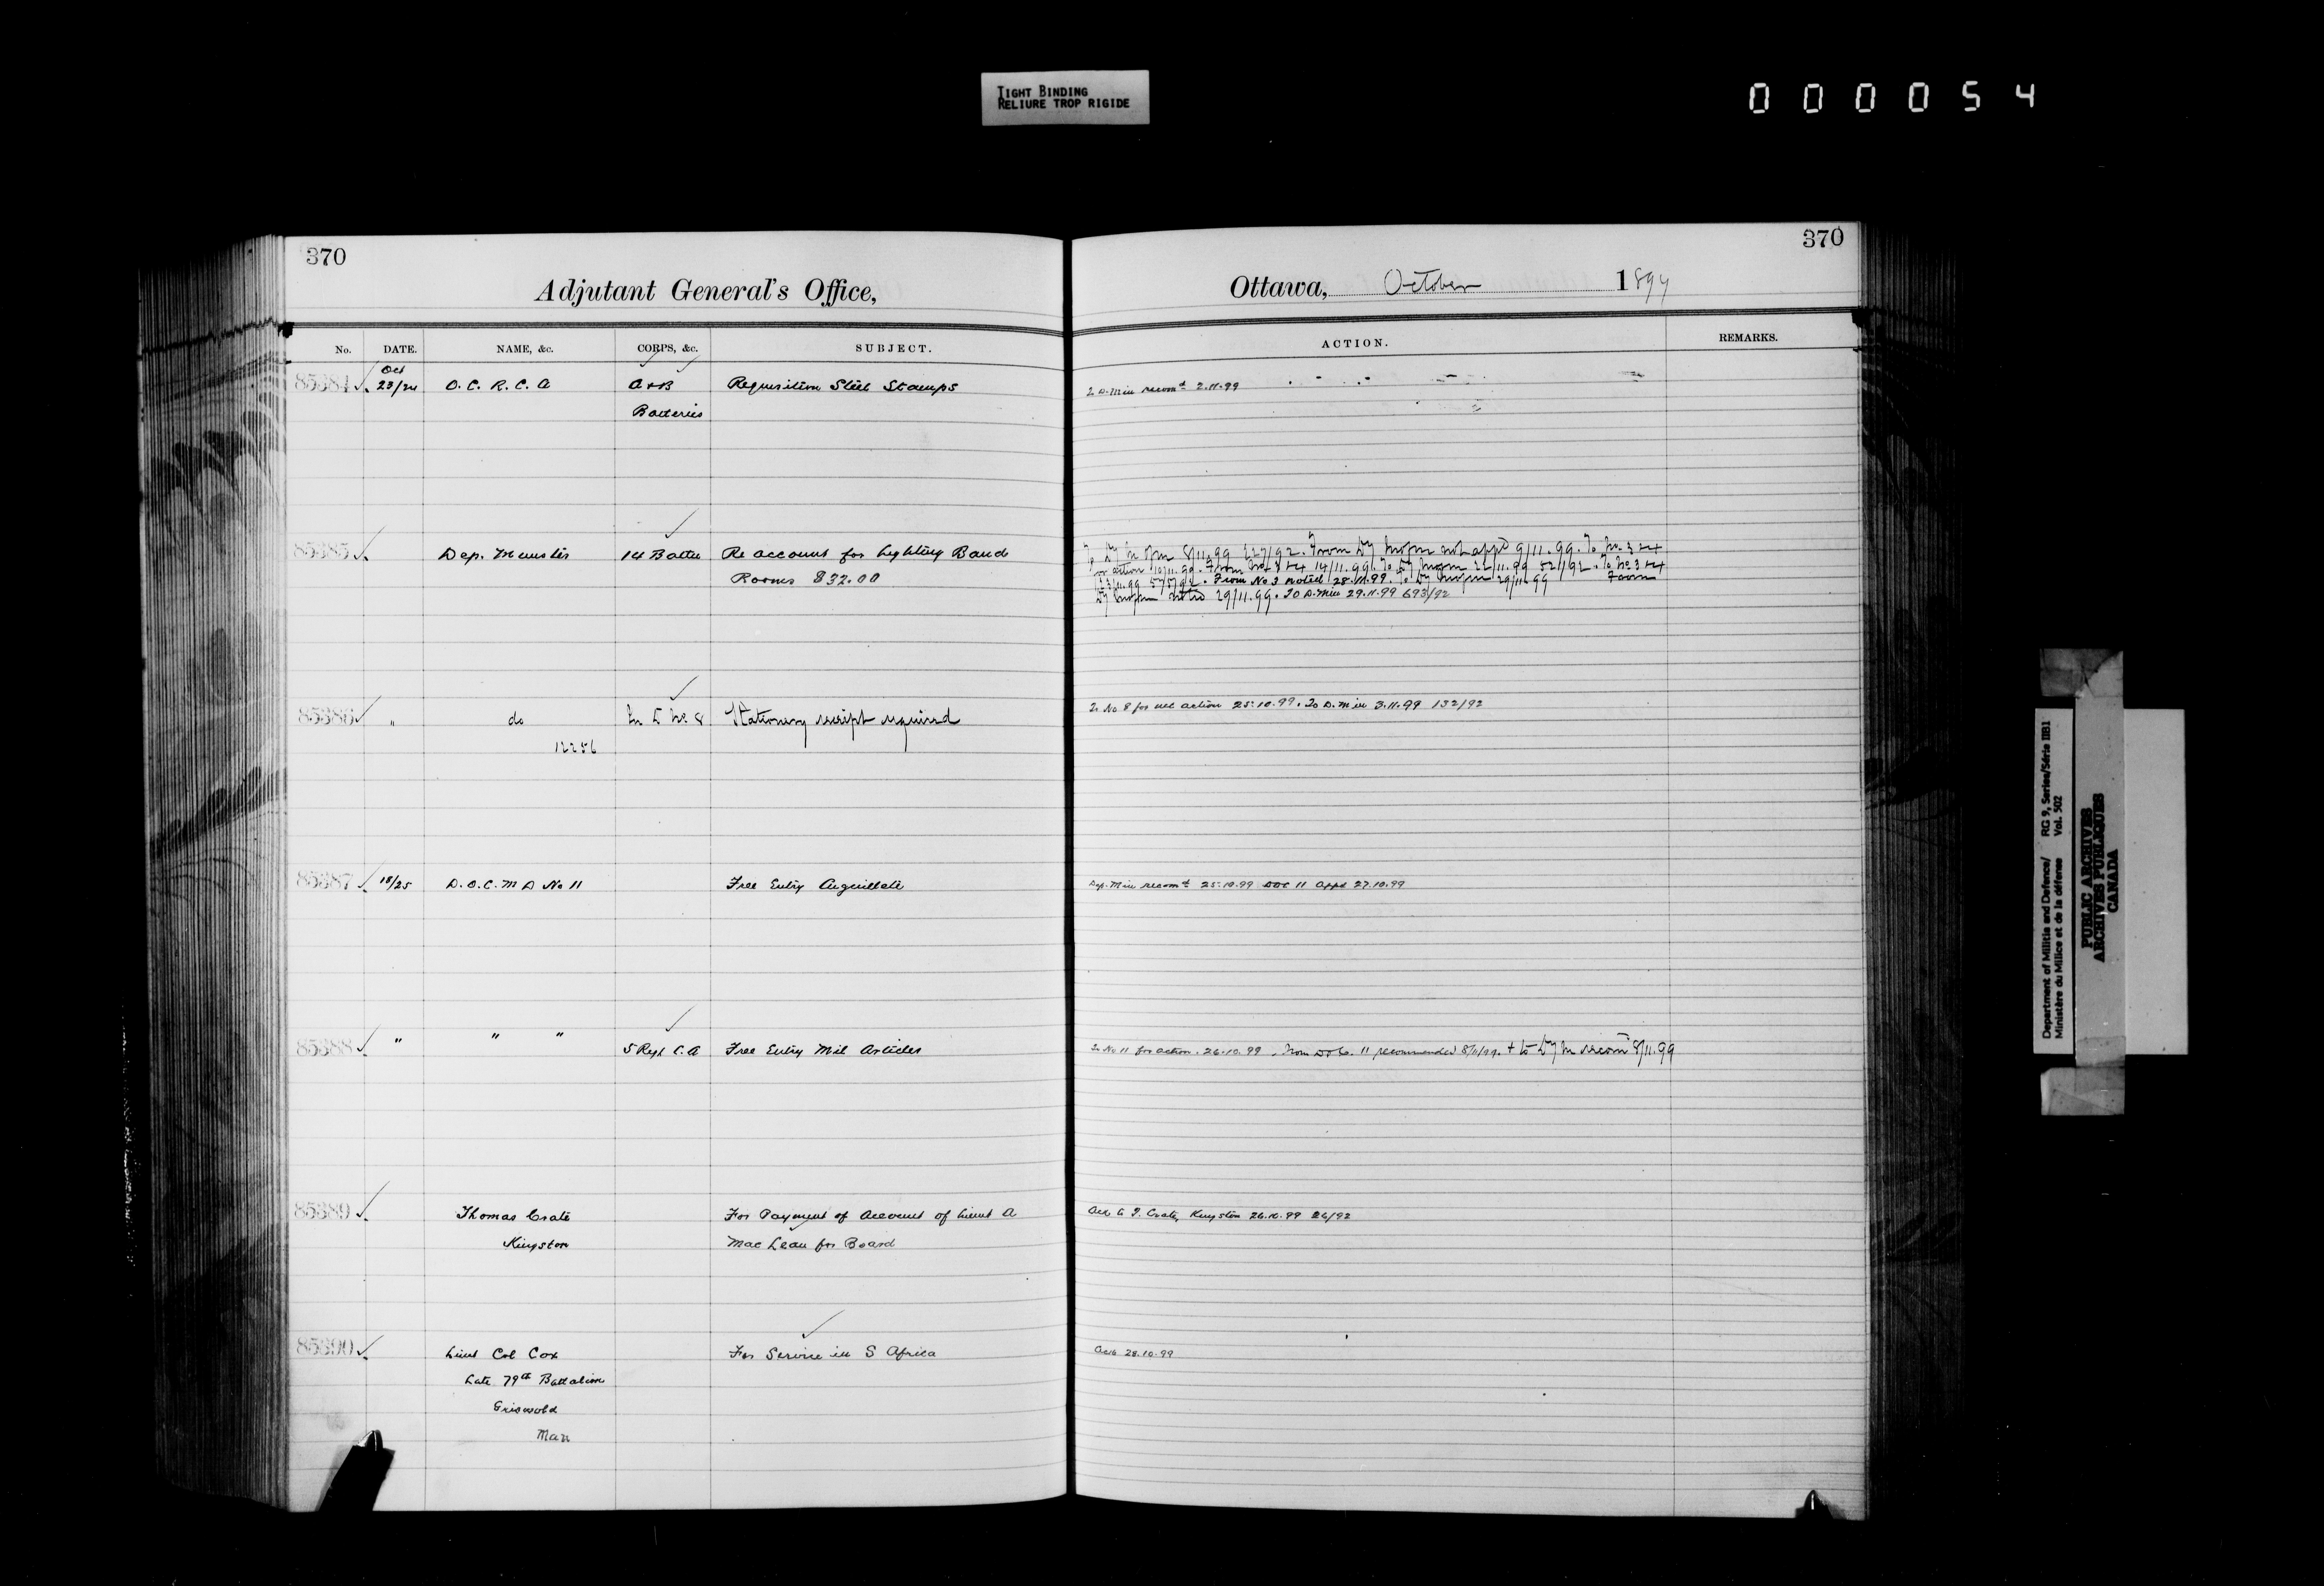 TIGHT BINDING
RELIURE TROP RIGIDE
000054
370
Adjutant General's Office,
No. DATE. NAME, &c. CORPS, &c. SUBJECT.
Oct
85384 23/24 O. C. R. C. A A & B Requisition Steel Stamps
Batteries
85385 Dep. Minister 14 Battn Re account for lighting Band
Rooms $32.00
85386 " do M D No. 8 Stationery receipt required
12256
85387 18/25 D. O. C. M D No 11 Free Entry Aiguillette
85388 " " " 5 Regt C. A Free Entry Mil Articles
85389 Thomas Crate For Payment of Account of Lieut A
Kingston Mac Lean for Board
85390 Lieut Col Cox For Service in S Africa
Late 79th Battalion
Griswold
Man
370
Ottawa, October 1899
ACTION. REMARKS.
To D. Min recomd 2.11.99
8/11.99 227/92. From not appd 9/11.99. To No. 3 &4
for action 10/11.99. From No. 3 &4 14/11.99. To 22/11.99 521/92. To No. 3 &4
23/11.99 From No 3 noted 28.11.99. To 29/11.99 From
noted 29/11.99. To D. Min 29.11.99 693/92
To No 8 for nec action 25.10.99. To D. Min 3.11.99 132/92
Dep. Min recomd 25.10.99 DOC 11 appd 27.10.99
To No 11 for action. 26.10.99. From DOC. 11 recommended 8/11/99. + to Dy M recomd 8/11.99
Ack to T. Crate, Kingston 26.10.99 26/92
Ack 28.10.99
Department of Militia and Defence/ RG 9, Series/Série IIB1
Ministère du Milice et de la défense Vol. 502
PUBLIC ARCHIVES
ARCHIVES PUBLIQUES
CANADA